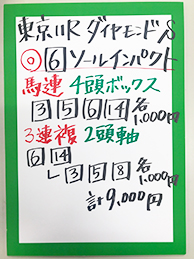 東京11R ダイヤモンドS
◎ 6 ソールインパクト
馬連 4頭ボックス
3 5 6 14 各1,000円
3連複 2頭軸
6 14
└ 3 5 8 各1,000円
計9,000円